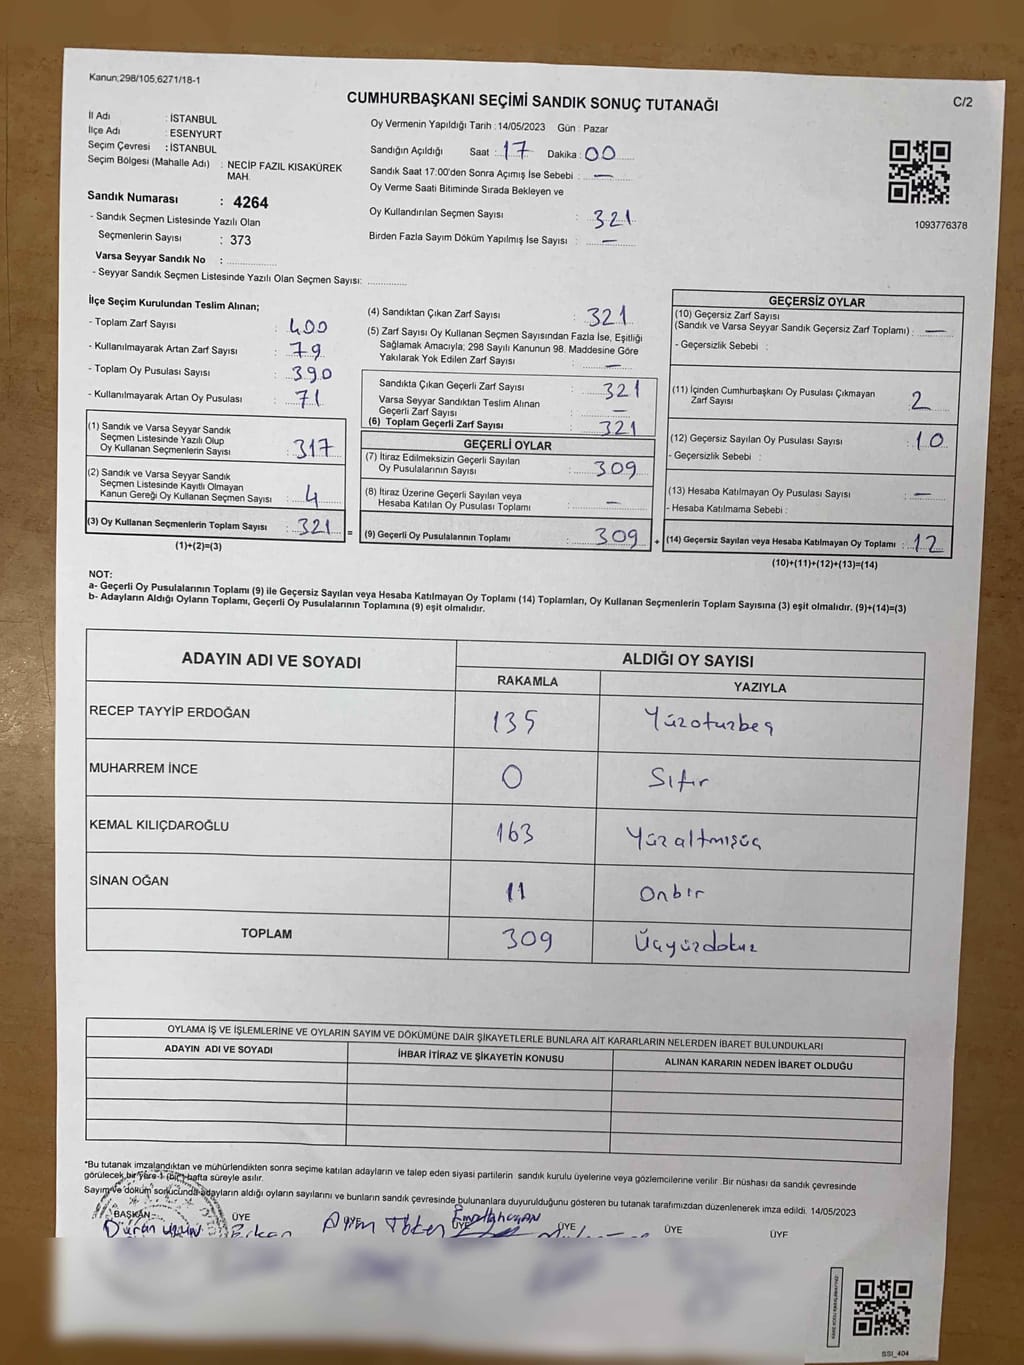 Kanun;298/105,6271/18-1
C/2
CUMHURBAŞKANI SEÇİMİ SANDIK SONUÇ TUTANAĞI
İl Adı : İSTANBUL
İlçe Adı : ESENYURT
Seçim Çevresi : İSTANBUL
Seçim Bölgesi (Mahalle Adı) : NECİP FAZIL KISAKÜREK
MAH.
Sandık Numarası : 4264
- Sandık Seçmen Listesinde Yazılı Olan
Seçmenlerin Sayısı : 373
Varsa Seyyar Sandık No :
- Seyyar Sandık Seçmen Listesinde Yazılı Olan Seçmen Sayısı:
Oy Vermenin Yapıldığı Tarih : 14/05/2023 Gün : Pazar
Sandığın Açıldığı Saat : 17 Dakika : 00
Sandık Saat 17:00'den Sonra Açılmış İse Sebebi : —
Oy Verme Saati Bitiminde Sırada Bekleyen ve
Oy Kullandırılan Seçmen Sayısı : 321
Birden Fazla Sayım Döküm Yapılmış İse Sayısı : —
1093776378
İlçe Seçim Kurulundan Teslim Alınan;
- Toplam Zarf Sayısı : 400
- Kullanılmayarak Artan Zarf Sayısı : 79
- Toplam Oy Pusulası Sayısı : 390
- Kullanılmayarak Artan Oy Pusulası : 71
(1) Sandık ve Varsa Seyyar Sandık
Seçmen Listesinde Yazılı Olup
Oy Kullanan Seçmenlerin Sayısı : 317
(2) Sandık ve Varsa Seyyar Sandık
Seçmen Listesinde Kayıtlı Olmayan
Kanun Gereği Oy Kullanan Seçmen Sayısı : 4
(3) Oy Kullanan Seçmenlerin Toplam Sayısı : 321 =
(1)+(2)=(3)
(4) Sandıktan Çıkan Zarf Sayısı : 321
(5) Zarf Sayısı Oy Kullanan Seçmen Sayısından Fazla İse, Eşitliği
Sağlamak Amacıyla; 298 Sayılı Kanunun 98. Maddesine Göre
Yakılarak Yok Edilen Zarf Sayısı : —
Sandıkta Çıkan Geçerli Zarf Sayısı : 321
Varsa Seyyar Sandıktan Teslim Alınan
Geçerli Zarf Sayısı : —
(6) Toplam Geçerli Zarf Sayısı : 321
GEÇERLİ OYLAR
(7) İtiraz Edilmeksizin Geçerli Sayılan
Oy Pusulalarının Sayısı : 309
(8) İtiraz Üzerine Geçerli Sayılan veya
Hesaba Katılan Oy Pusulası Toplamı : —
(9) Geçerli Oy Pusulalarının Toplamı : 309 +
GEÇERSİZ OYLAR
(10) Geçersiz Zarf Sayısı
(Sandık ve Varsa Seyyar Sandık Geçersiz Zarf Toplamı) : —
- Geçersizlik Sebebi :
(11) İçinden Cumhurbaşkanı Oy Pusulası Çıkmayan
Zarf Sayısı : 2
(12) Geçersiz Sayılan Oy Pusulası Sayısı : 10
- Geçersizlik Sebebi :
(13) Hesaba Katılmayan Oy Pusulası Sayısı : —
- Hesaba Katılmama Sebebi :
(14) Geçersiz Sayılan veya Hesaba Katılmayan Oy Toplamı : 12
(10)+(11)+(12)+(13)=(14)
NOT:
a- Geçerli Oy Pusulalarının Toplamı (9) ile Geçersiz Sayılan veya Hesaba Katılmayan Oy Toplamı (14) Toplamları, Oy Kullanan Seçmenlerin Toplam Sayısına (3) eşit olmalıdır. (9)+(14)=(3)
b- Adayların Aldığı Oyların Toplamı, Geçerli Oy Pusulalarının Toplamına (9) eşit olmalıdır.
ADAYIN ADI VE SOYADI ALDIĞI OY SAYISI
RAKAMLA YAZIYLA
RECEP TAYYİP ERDOĞAN 135 Yüzotuzbeş
MUHARREM İNCE 0 Sıfır
KEMAL KILIÇDAROĞLU 163 Yüzaltmışüç
SİNAN OĞAN 11 Onbir
TOPLAM 309 Üçyüzdokuz
OYLAMA İŞ VE İŞLEMLERİNE VE OYLARIN SAYIM VE DÖKÜMÜNE DAİR ŞİKAYETLERLE BUNLARA AİT KARARLARIN NELERDEN İBARET BULUNDUKLARI
ADAYIN ADI VE SOYADI İHBAR İTİRAZ VE ŞİKAYETİN KONUSU ALINAN KARARIN NEDEN İBARET OLDUĞU
*Bu tutanak imzalandıktan ve mühürlendikten sonra seçime katılan adayların ve talep eden siyasi partilerin sandık kurulu üyelerine veya gözlemcilerine verilir .Bir nüshası da sandık çevresinde
görülecek bir yere 1 (bir) hafta süreyle asılır.
Sayım ve döküm sonucunda adayların aldığı oyların sayılarını ve bunların sandık çevresinde bulunanlara duyurulduğunu gösteren bu tutanak tarafımızdan düzenlenerek imza edildi. 14/05/2023
BAŞKAN ÜYE ÜYE ÜYE ÜYE ÜYE
Duran Uzun
SSI_404